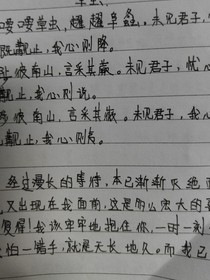 草虫、
喓喓草虫，趯趯阜螽。未见君子，
既觏止，我心则降。
陟彼南山，言采其蕨。未见君子，忧心
觏止，我心则说。
陟彼南山，言采其薇。未见君子，我心
觏止，我心则夷。
经过漫长的等待，本已渐渐灰绝而
又出现在我面前，这是的么宏大的喜
我该牢牢地抱住你，一时一刻
怕一撒手，就是天长地久。而我已